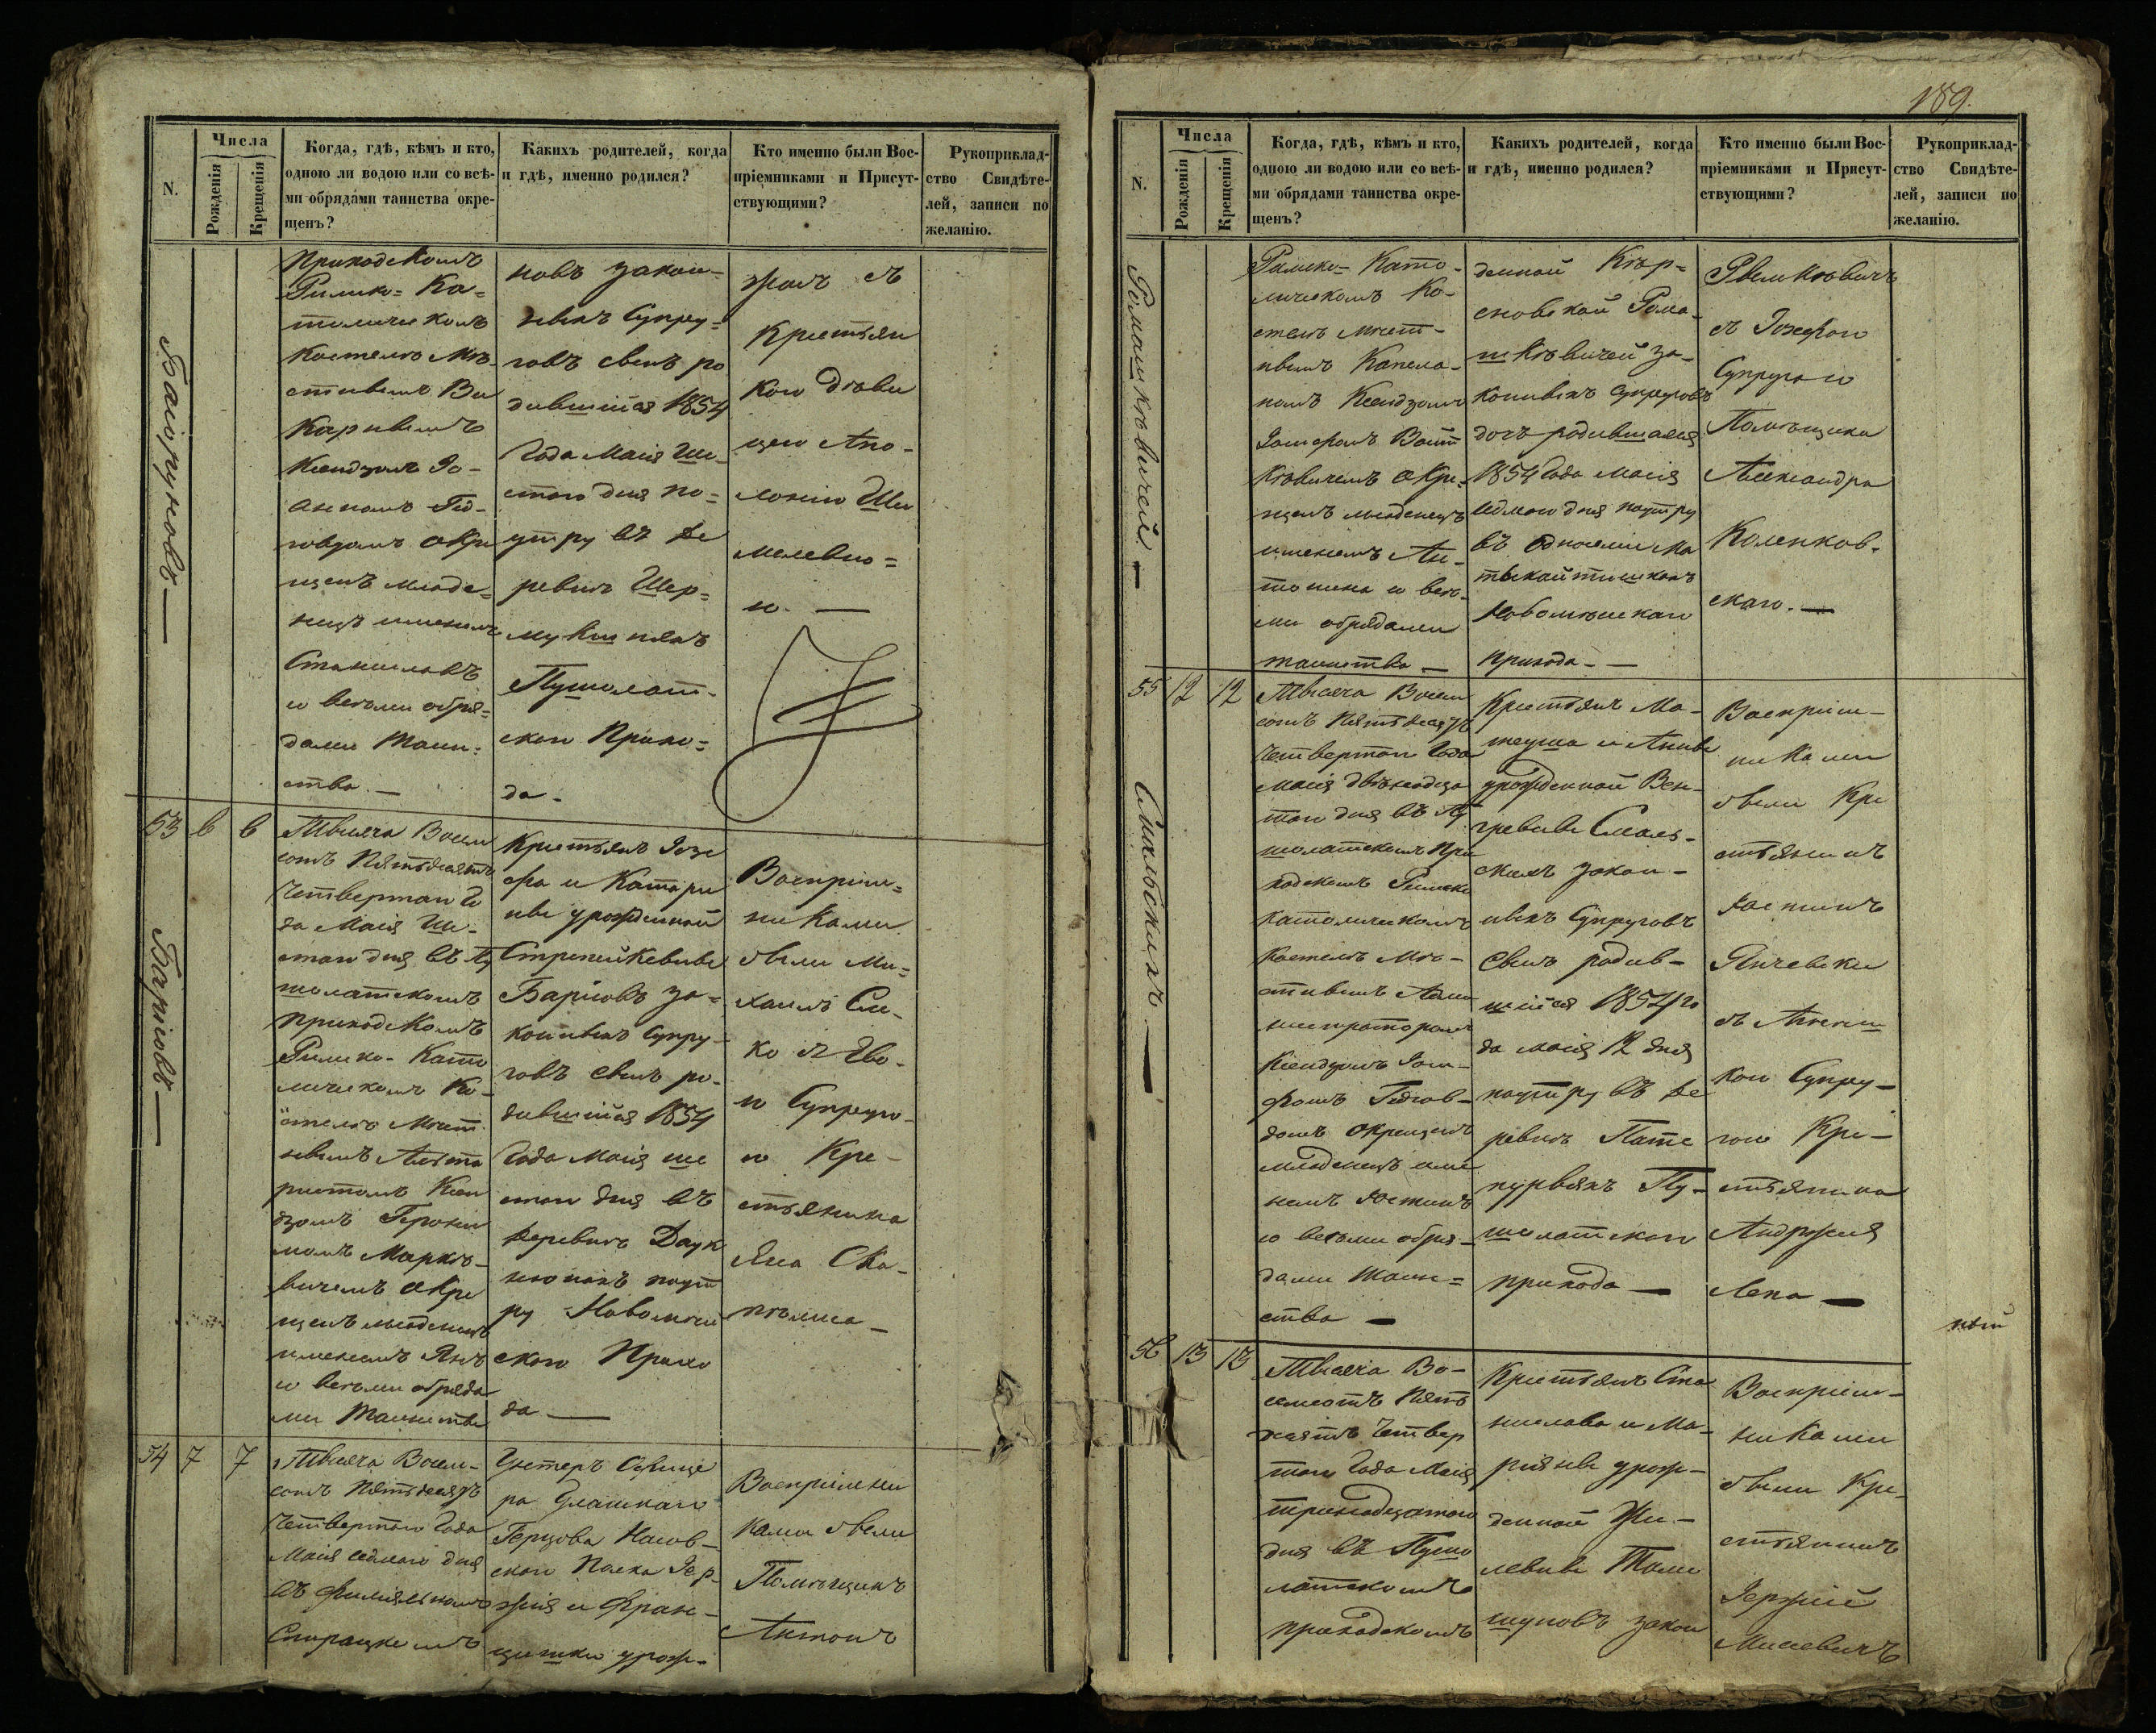 N.
Числа
Рожденія
Крещенія
Когда, гдѣ, кѣмъ и кто,
одною ли водою или со всѣ-
ми обрядами таинства окре-
щенъ?
Какихъ родителей, когда
и гдѣ, именно родился?
Кто именно были Вос-
пріемниками и Присут-
ствующими?
Рукоприклад-
ство Свидѣте-
лей, записи по
желанію.
Баіоруновъ —
Приходскомъ
Римско= Ка=
толическомъ
Костелѣ Мѣ-
стнымъ Ви
карнымъ
Ксендзомъ Іо-
анномъ
окре
щенъ младе=
нецъ именемъ
Станиславъ
со всѣми обря=
дами Таин=
ства. —
новъ закон-
ныхъ Супру=
говъ сынъ ро
дившійся 1854
Года Маія Ше-
стого дня по=
утру въ де
ревнѣ
Пушолат-
скаго Прихо=
да -
съ
Крестьян
кою дѣви
цею Апо-
лоніею
53 6 6
Баріовъ —
Тысяча Восем
сотъ Пятьдесятъ
Четвертаго Го
да Маія Ше-
стаго дня въ Пу
шолатскомъ
Приходскомъ
Римско- Като
лическомъ Ко-
стелѣ Мѣст
нымъ
Ксен
дзомъ Герони
момъ Маркѣ-
вичемъ окре
щенъ младенецъ
именемъ Янъ
со всѣми обряда
ми Таинства
Крестьянъ Іозе
фа и Катари
ны урожденной
Стрепейкевины
Баріовъ за=
конныхъ Супру-
говъ сынъ ро-
дившійся 1854
Года Маія ше
стаго дня въ
деревнѣ Даук
нюнахъ поут
ру Новомѣй
скаго Прихо
да —
Воспріем=
никами
были Ми=
хаилъ
съ Ево-
ю Супруго-
ю Кре-
стьянина
Яна
54 7 7
Тысяча Восем-
сотъ Пятьдесятъ
Четвертаго Года
Маія седмаго дня
въ филіяльномъ
Унтеръ Офице
ра
Полка Іер-
жія и Фран-
цишки урож-
Воспріемни
ками были
Помѣщикъ
Антонъ
189.
N.
Числа
Рожденія
Крещенія
Когда, гдѣ, кѣмъ и кто,
одною ли водою или со всѣ-
ми обрядами таинства окре-
щенъ?
Какихъ родителей, когда
и гдѣ, именно родился?
Кто именно были Вос-
пріемниками и Присут-
ствующими?
Рукоприклад-
ство Свидѣте-
лей, записи по
желанію.
Ромашкѣвичей —
Римско= Като-
лическомъ Ко-
стелѣ мѣст-
нымъ Капела-
номъ Ксендзомъ
Іосифомъ Войт
кѣвичемъ окре-
щенъ младенецъ
именемъ Ан-
тонина со всѣ-
ми обрядами
таинства —
денной
Рома-
шкѣвичей за-
конныхъ Супруговъ
дочь родившаяся
1854 Года Маія
седмаго дня поутру
въ
Новомѣйскаго
прихода - —
съ Іозефою
Супругою
Помѣщика
Александра
Коленков-
скаго. —
55 12 12
Смильскихъ —
Тысяча Восем
сотъ Пятьдесятъ
Четвертаго Года
Маія двѣнадца
таго дня въ Пу
шолатскомъ При
ходскомъ Римско
католическомъ
Костелѣ Мѣ-
стнымъ Адми
нистраторомъ
Ксендзомъ Іоси-
фомъ
окрещенъ
младенецъ име
немъ Юстинъ
со всѣми обря-
дами Таин=
ства —
Крестьянъ Ма-
теуша и Анны
урожденной Вен-
гревны Смиль-
скихъ закон-
ныхъ Супруговъ
сынъ родив-
шійся 1854 го
да маія 12 дня
поутру въ де
ревнѣ Пате
нурвяхъ Пу-
шолатскаго
прихода —
Воспріем-
никами
были Кре
стьянинъ
Юстинъ
Янчевски
съ Агнеш
кою Супру-
гою Кре-
стьянина
Андржея
Лепа —
ный
56 13 13
Тысяча Во-
семсотъ Пять
десятъ Четвер
таго Года Маія
тринадцатаго
дня въ Пушо
латскомъ
приходскомъ
Крестьянъ Ста
нислава и Ма-
ріяны урож-
денной Жи-
левны Тома
шуновъ закон
Воспріем-
никами
были Кре-
стьянинъ
Іержій
Мисевичъ